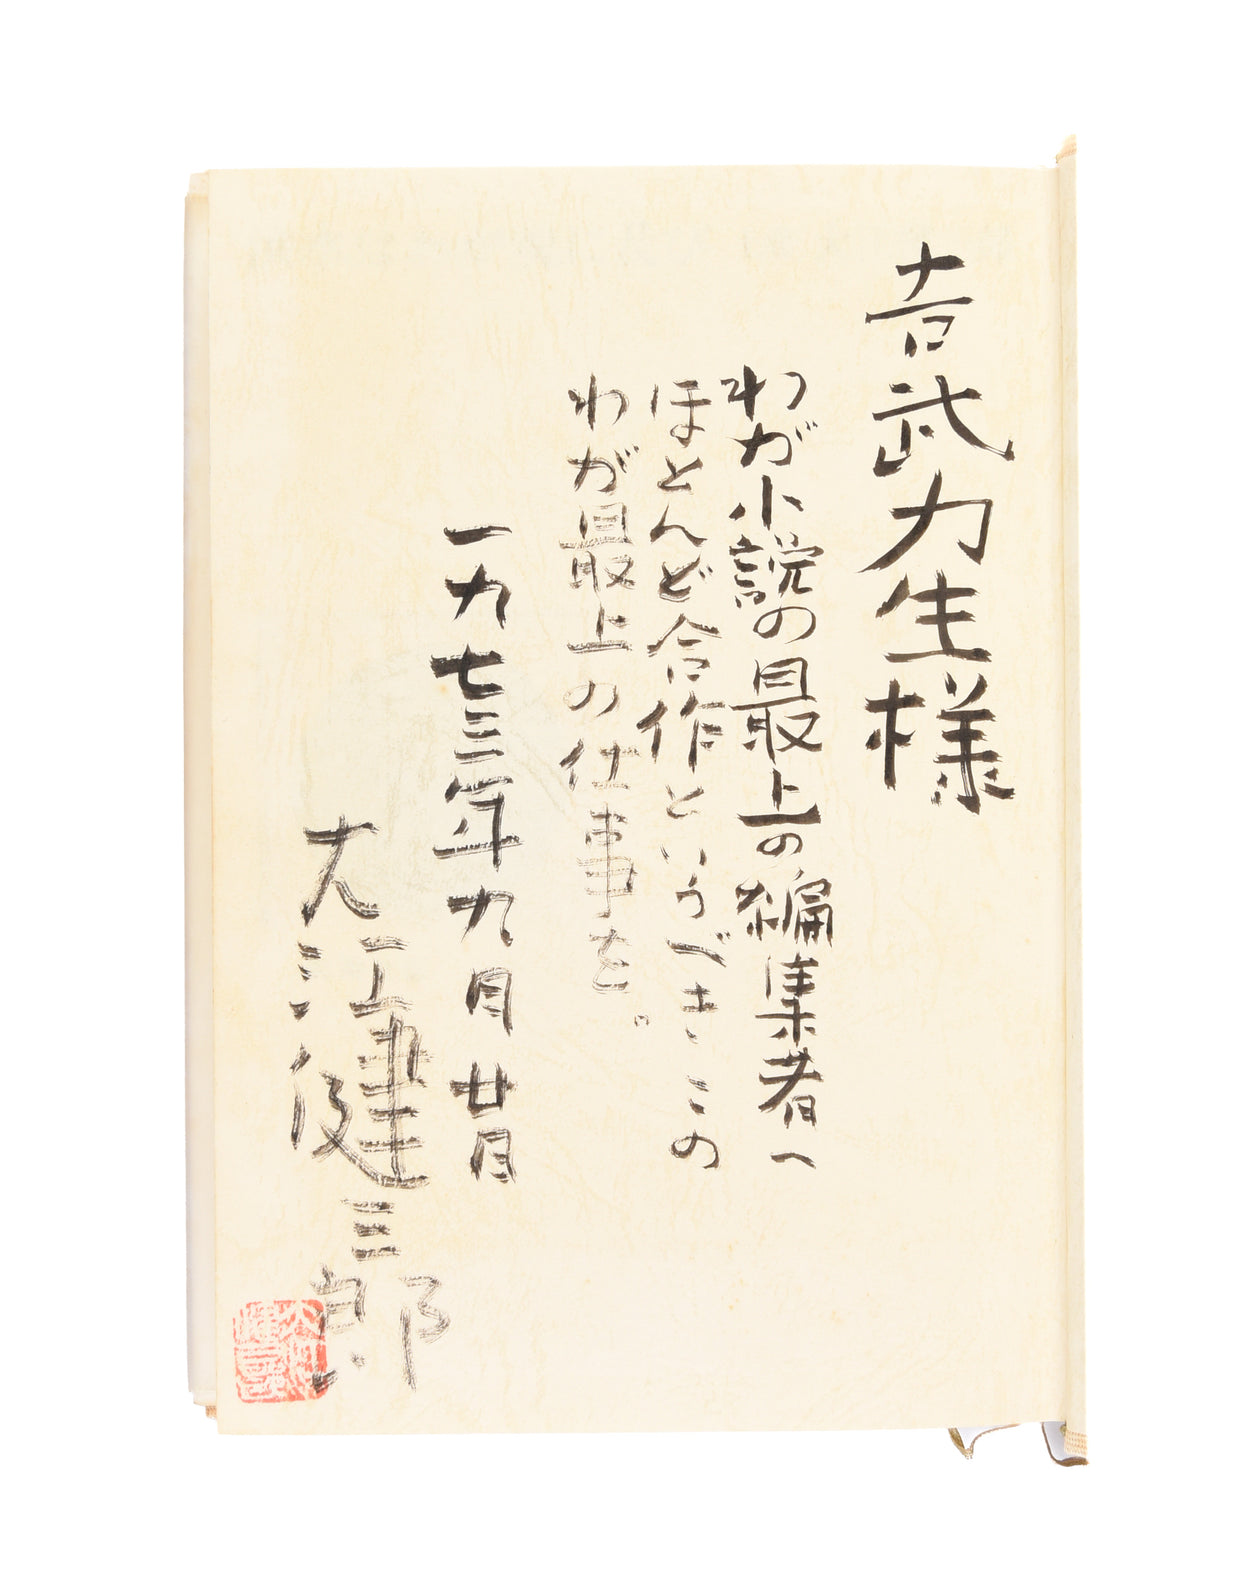 吉武力生様
わが小説の最上の編集者へ
ほとんど合作というべきこの
わが最上の仕事を。
一九七三年九月廿日
大江健三郎